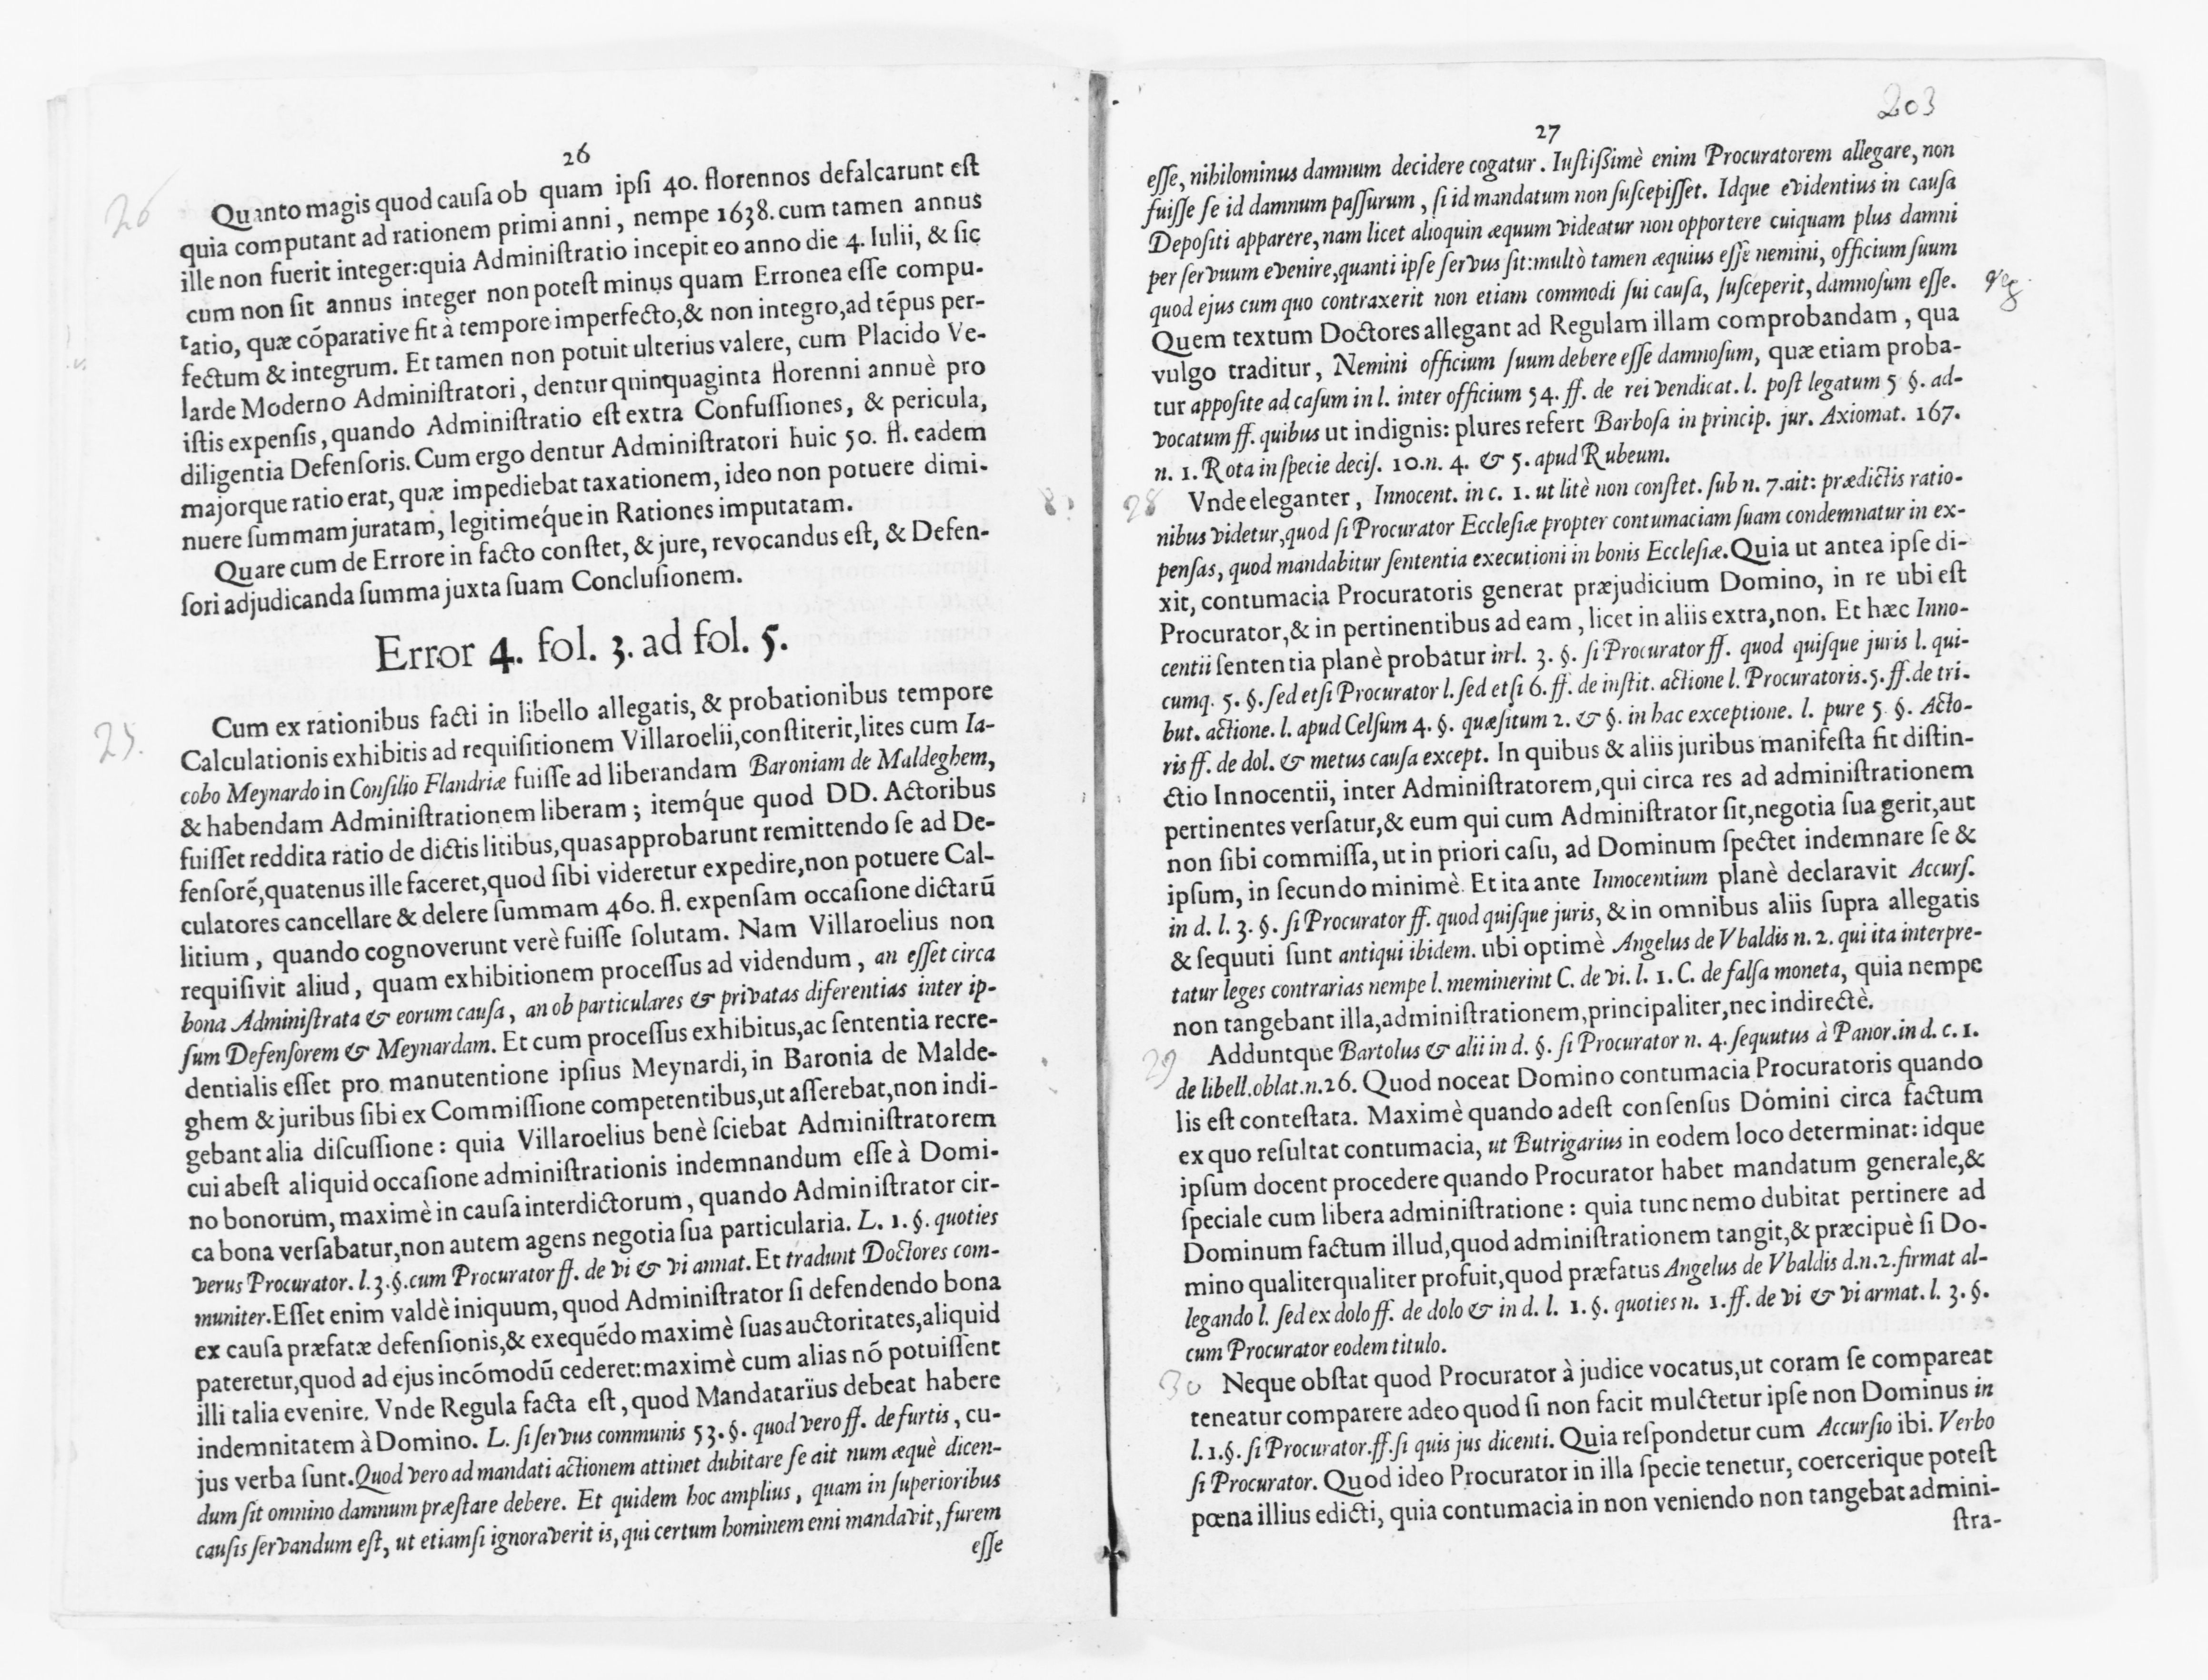 26
26
Quanto magis quod causa ob quam ipsi 40. florennos defalcarunt est
quia computant ad rationem primi anni, nempe 1638. cum tamen annus
ille non fuerit integer: quia Administratio incepit eo anno die 4. Iulii, & sic
cum non sit annus integer non potest minus quam Erronea esse compu-
tatio, quæ cõparative fit à tempore imperfecto, & non integro, ad tẽpus per-
fectum & integrum. Et tamen non potuit ulterius valere, cum Placido Ve-
larde Moderno Administratori, dentur quinquaginta florenni annuè pro
istis expensis, quando Administratio est extra Confussiones, & pericula,
diligentia Defensoris. Cum ergo dentur Administratori huic 50. fl. eadem
majorque ratio erat, quæ impediebat taxationem, ideo non potuere dimi-
nuere summam juratam, legitimeq́ue in Rationes imputatam.
Quare cum de Errore in facto constet, & jure, revocandus est, & Defen-
sori adjudicanda summa juxta suam Conclusionem.
Error 4. fol. 3. ad fol. 5.
Cum ex rationibus facti in libello allegatis, & probationibus tempore
Calculationis exhibitis ad requisitionem Villaroelii, constiterit, lites cum Ia-
cobo Meynardo in Consilio Flandriæ fuisse ad liberandam Baroniam de Maldeghem,
& habendam Administrationem liberam; itemq́ue quod DD. Actoribus
fuisset reddita ratio de dictis litibus, quas approbarunt remittendo se ad De-
fensorẽ, quatenus ille faceret, quod sibi videretur expedire, non potuere Cal-
culatores cancellare & delere summam 460. fl. expensam occasione dictarũ
litium, quando cognoverunt verè fuisse solutam. Nam Villaroelius non
requisivit aliud, quam exhibitionem processus ad videndum, an esset circa
bona Administrata & eorum causa, an ob particulares & privatas diferentias inter ip-
sum Defensorem & Meynardam. Et cum processus exhibitus, ac sententia recre-
dentialis esset pro manutentione ipsius Meynardi, in Baronia de Malde-
ghem & juribus sibi ex Commissione competentibus, ut asserebat, non indi-
gebant alia discussione: quia Villaroelius benè sciebat Administratorem
cui abest aliquid occasione administrationis indemnandum esse à Domi-
no bonorum, maximè in causa interdictorum, quando Administrator cir-
ca bona versabatur, non autem agens negotia sua particularia. L. 1. §. quoties
verus Procurator. l. 3. §. cum Procurator ff. de vi & vi annat. Et tradunt Doctores com-
muniter. Esset enim valdè iniquum, quod Administrator si defendendo bona
ex causa præfatæ defensionis, & exequẽdo maximè suas auctoritates, aliquid
pateretur, quod ad ejus incõmodũ cederet: maximè cum alias nõ potuissent
illi talia evenire. Vnde Regula facta est, quod Mandatarïus debeat habere
indemnitatem à Domino. L. si servus communis 53. §. quod vero ff. de furtis, cu-
jus verba sunt. Quod vero ad mandati actionem attinet dubitare se ait num æquè dicen-
dum sit omnino damnum præstare debere. Et quidem hoc amplius, quam in superioribus
causis servandum est, ut etiamsi ignoraverit is, qui certum hominem emi mandavit, furem
esse
203
27
esse, nihilominus damnum decidere cogatur. Iustissimè enim Procuratorem allegare, non
fuisse se id damnum passurum, si id mandatum non suscepisset. Idque evidentius in causa
Depositi apparere, nam licet alioquin æquum videatur non opportere cuiquam plus damni
per servuum evenire, quanti ipse servus sit: multò tamen æquius esse nemini, officium suum
quod ejus cum quo contraxerit non etiam commodi sui causa, susceperit, damnosum esse.
Quem textum Doctores allegant ad Regulam illam comprobandam, qua
vulgo traditur, Nemini officium suum debere esse damnosum, quæ etiam proba-
tur apposite ad casum in l. inter officium 54. ff. de rei vendicat. l. post legatum 5 §. ad-
vocatum ff. quibus ut indignis: plures refert Barbosa in princip. jur. Axiomat. 167.
n. 1. Rota in specie decis. 10. n. 4. & 5. apud Rubeum.
28
Vnde eleganter, Innocent. in c. 1. ut litè non constet. sub n. 7. ait: prædictis ratio-
nibus videtur, quod si Procurator Ecclesiæ propter contumaciam suam condemnatur in ex-
pensas, quod mandabitur sententia executioni in bonis Ecclesiæ. Quia ut antea ipse di-
xit, contumacia Procuratoris generat præjudicium Domino, in re ubi est
Procurator, & in pertinentibus ad eam, licet in aliis extra, non. Et hæc Inno-
centii sententia planè probatur in l. 3. §. si Procurator ff. quod quisque juris l. qui-
cumq. 5. §. sed etsi Procurator l. sed etsi 6. ff. de instit. actione l. Procuratoris. 5. ff. de tri-
but. actione. l. apud Celsum 4. §. quæsitum 2. & §. in hac exceptione. l. pure 5 §. Acto-
ris ff. de dol. & metus causa except. In quibus & aliis juribus manifesta fit distin-
ctio Innocentii, inter Administratorem, qui circa res ad administrationem
pertinentes versatur, & eum qui cum Administrator sit, negotia sua gerit, aut
non sibi commissa, ut in priori casu, ad Dominum spectet indemnare se &
ipsum, in secundo minimè. Et ita ante Innocentium planè declaravit Accurs.
in d. l. 3. §. si Procurator ff. quod quisque juris, & in omnibus aliis supra allegatis
& sequuti sunt antiqui ibidem. ubi optimè Angelus de Vbaldis n. 2. qui ita interpre-
tatur leges contrarias nempe l. meminerint C. de vi. l. 1. C. de falsa moneta, quia nempe
non tangebant illa, administrationem, principaliter, nec indirectè.
29
Adduntque Bartolus & alii in d. §. si Procurator n. 4. sequutus à Panor. in d. c. 1.
de libell. oblat. n. 26. Quod noceat Domino contumacia Procuratoris quando
lis est contestata. Maximè quando adest consensus Domini circa factum
ex quo resultat contumacia, ut Butrigarius in eodem loco determinat: idque
ipsum docent procedere quando Procurator habet mandatum generale, &
speciale cum libera administratione: quia tunc nemo dubitat pertinere ad
Dominum factum illud, quod administrationem tangit, & præcipuè si Do-
mino qualiterqualiter profuit, quod præfatus Angelus de Vbaldis d. n. 2. firmat al-
legando l. sed ex dolo ff. de dolo & in d. l. 1. §. quoties n. 1. ff. de vi & vi armat. l. 3. §.
cum Procurator eodem titulo.
30
Neque obstat quod Procurator à judice vocatus, ut coram se compareat
teneatur comparere adeo quod si non facit mulctetur ipse non Dominus in
l. 1. §. si Procurator. ff. si quis jus dicenti. Quia respondetur cum Accursio ibi. Verbo
si Procurator. Quod ideo Procurator in illa specie tenetur, coercerique potest
pœna illius edicti, quia contumacia in non veniendo non tangebat admini-
stra-